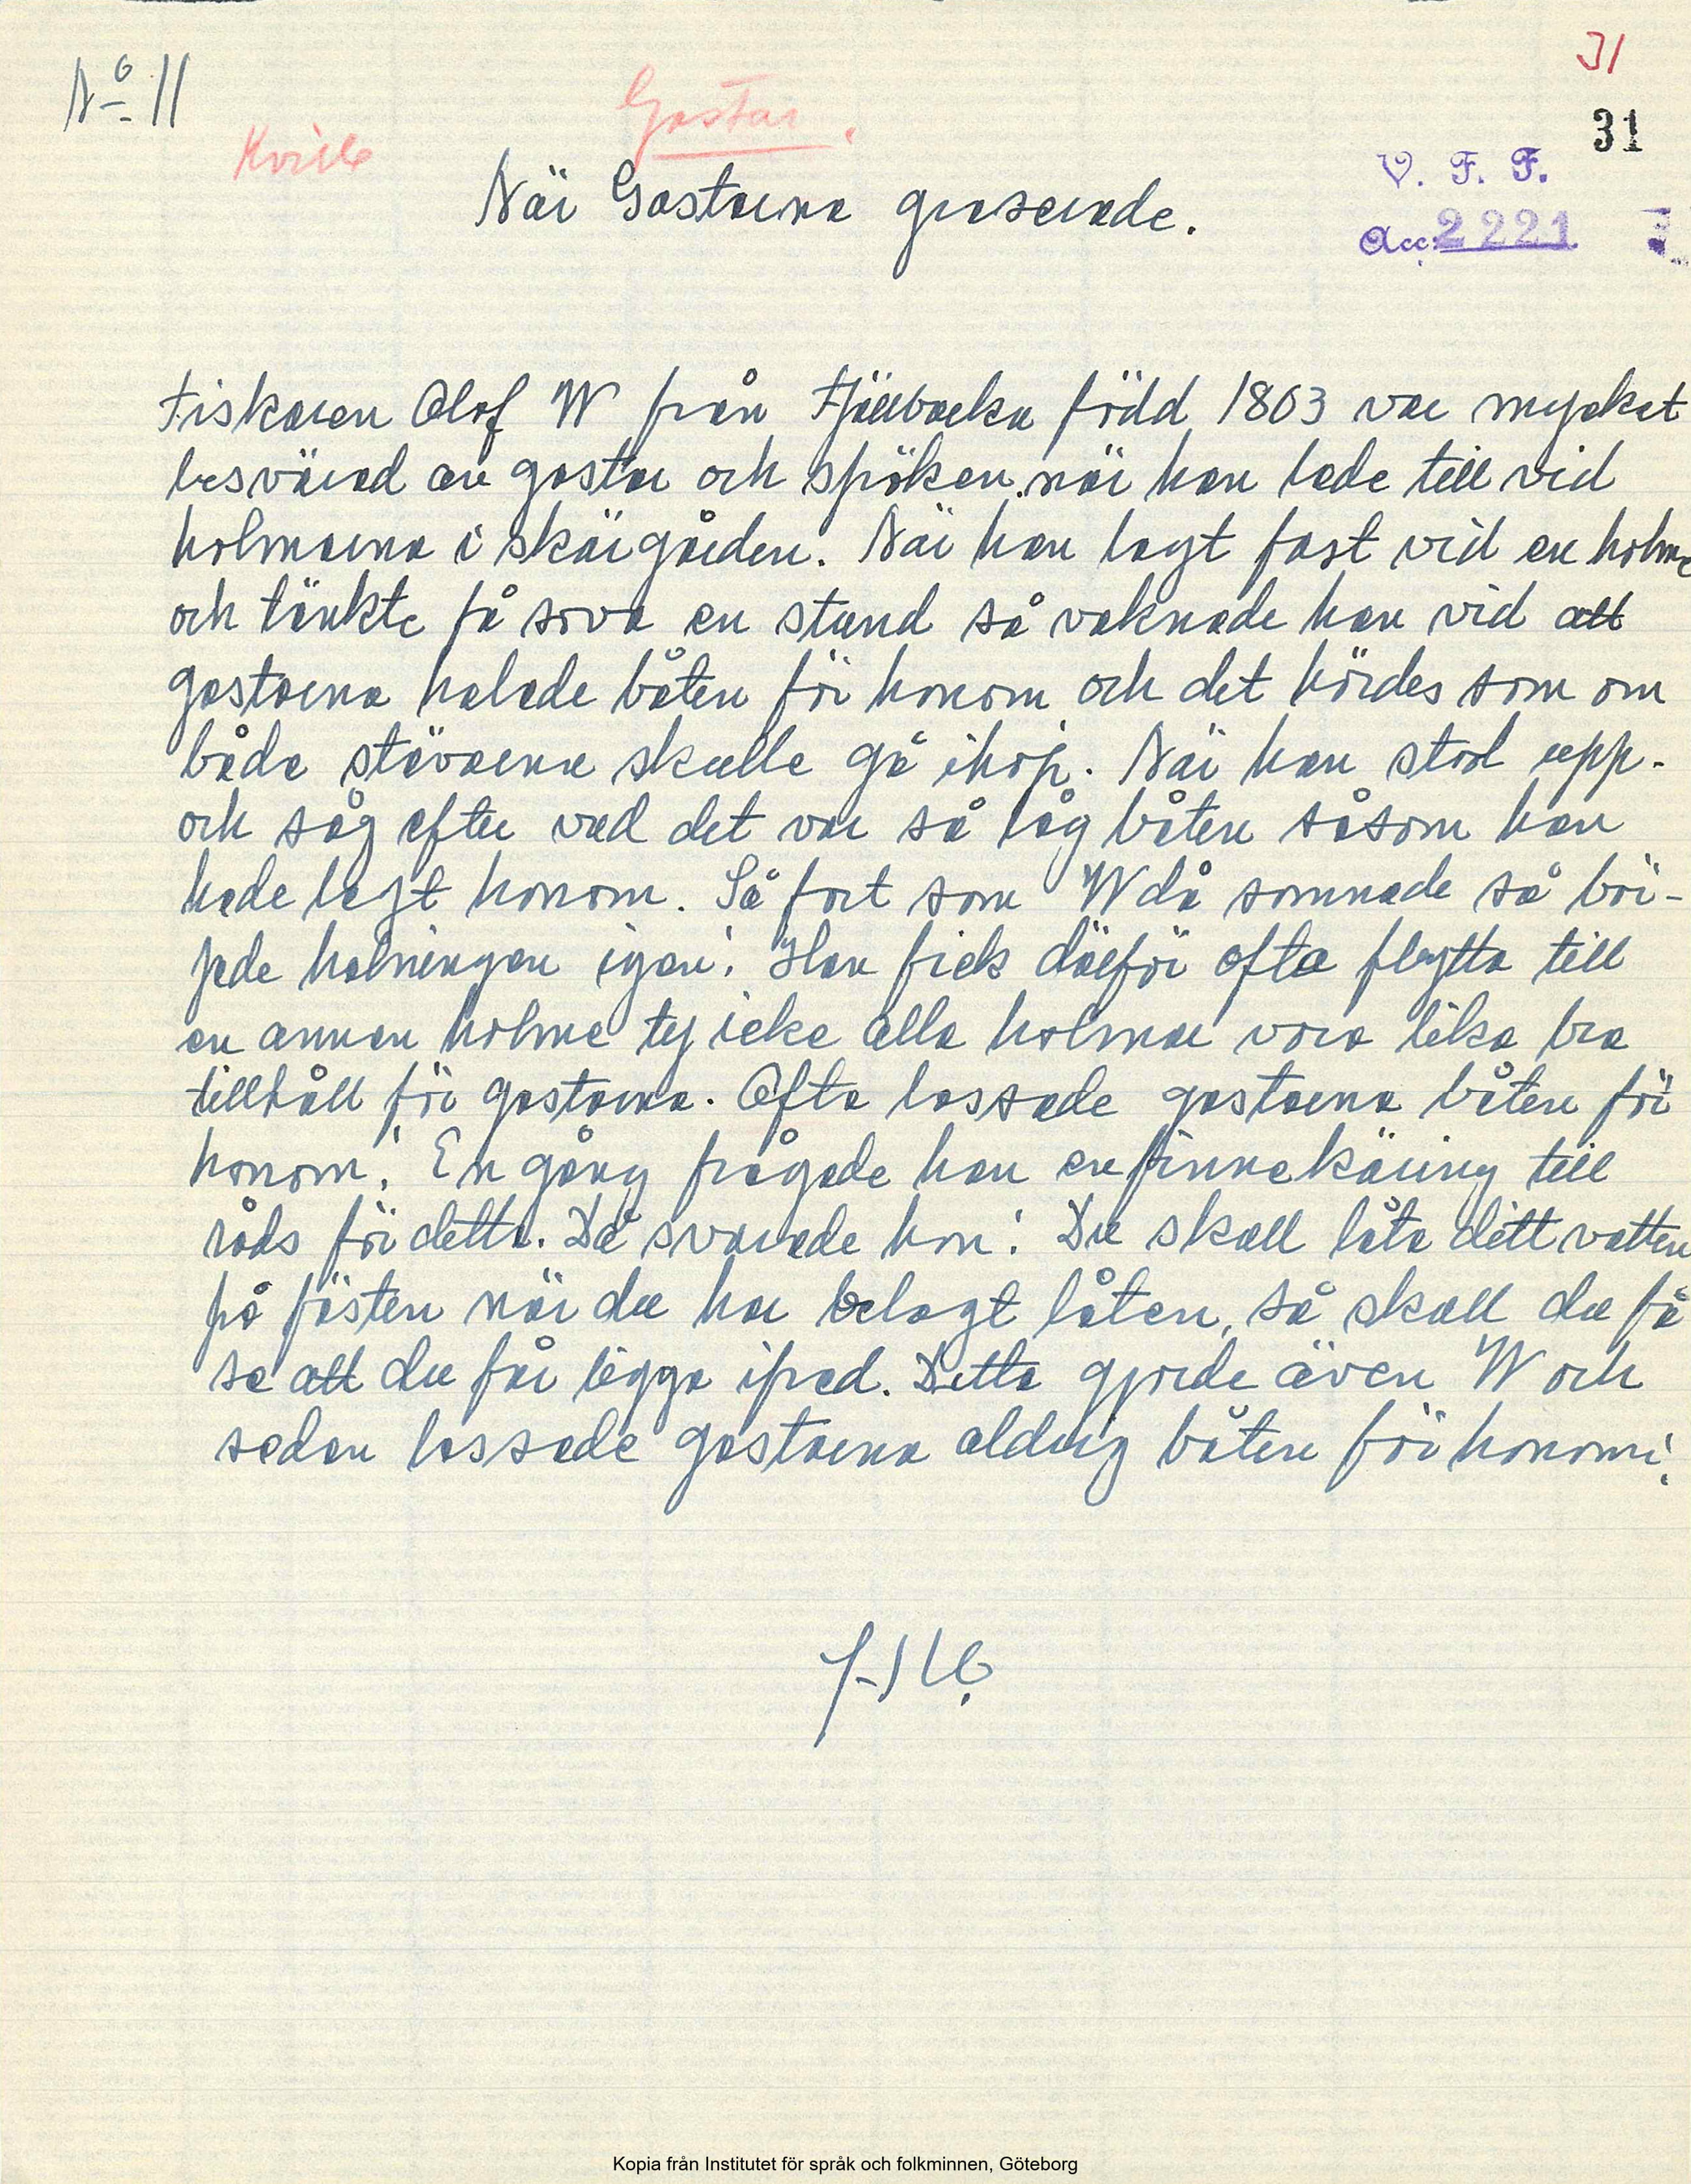 No 11
31
Gastar.
31
Kville
V. F. F.
När Gastarna graserade.
Acc. 2221
Fiskaren Olof W från Fjällbacka född 1803 var mycket
besvärad av gastar och spöken när han lade till vid
holmarna i skärgården. När han lagt fast vid en holme
och tänkte få sova en stund så vaknade han vid att
gastarna halade båten för honom och det hördes som om
både stävarna skulle gå ihop. När han stod upp
och såg efter vad det var så låg båten såsom han
hade lagt honom. Så fort som W då somnade så bör-
jade halningen igen! Han fick därför ofta flytta till
en annan holme ty icke alla holmar vora lika bra
tillhåll för gastarna. Ofta lossade gastarna båten för
honom! En gång frågade han en finnekäring till
råds för detta. Då svarade hon: Du skall låta ditt vatten
på fästen när du har belagt båten, så skall du få
se att du får ligga ifred. Detta gjorde även W och
sedan lossade gastarna aldrig båten för honom!
Kopia från Institutet för språk och folkminnen, Göteborg